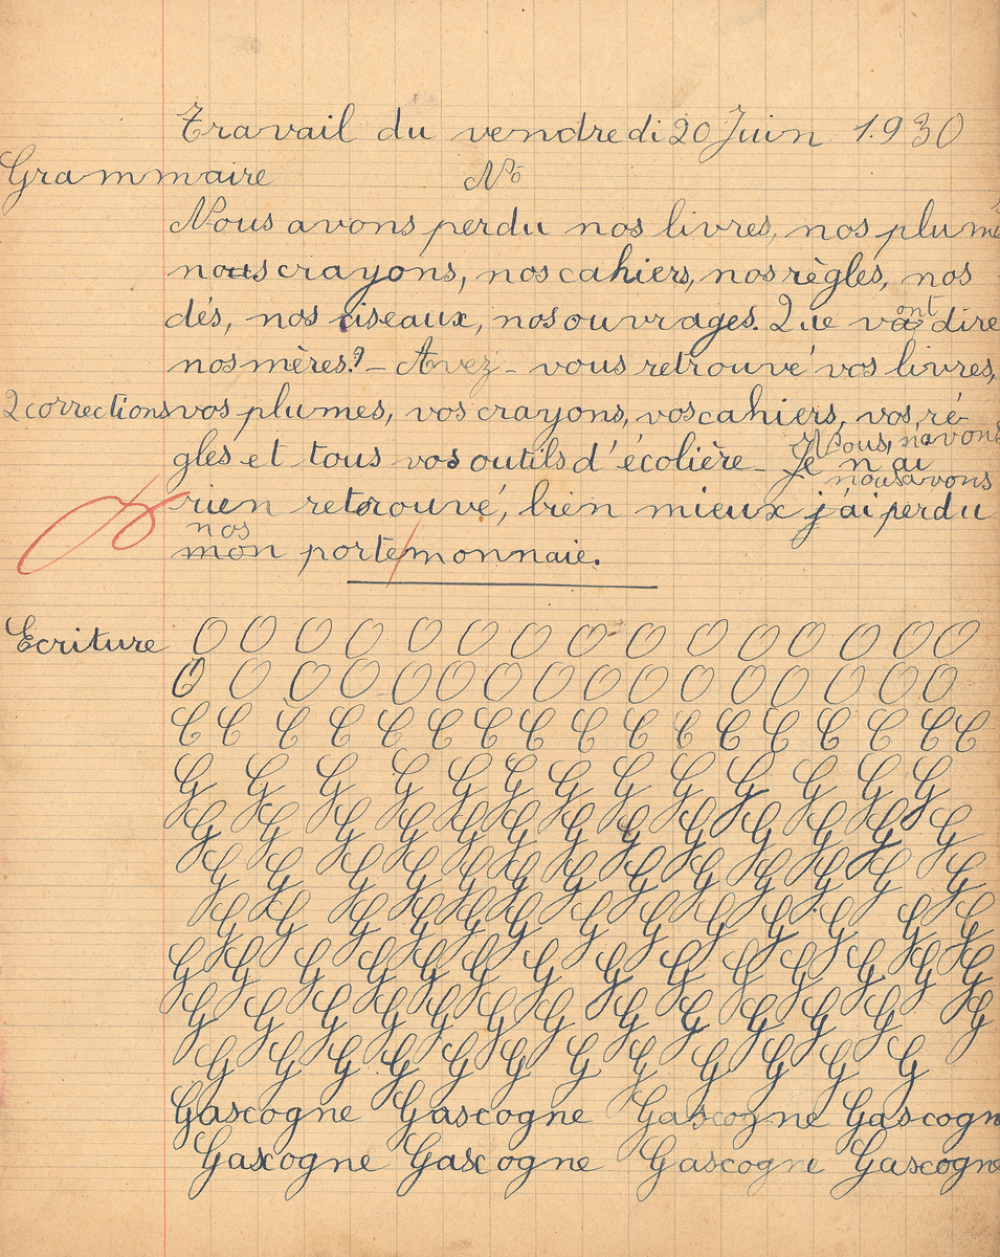 Travail du vendredi 20 Juin 1.930
Grammaire No
Nous avons perdu nos livres, nos plumes
nous crayons, nos cahiers, nos règles, nos
dés, nos ciseaux, nos ouvrages. Que va ont dire
nos mères? – Avez-vous retrouvé vos livres,
2 corrections vos plumes, vos crayons, vos cahiers, vos, rè-
Nous, n'avons
gles et tous vos outils d'écolière – Je n'ai
nous avons
rien retrouvé, bien mieux j'ai perdu
nos
mon porte/monnaie.
Ecriture O O O O O O O O O O O O O O O
O O O O O O O O O O O O O O O
C C C C C C C C C C C C C C C C
G G G G G G G G G G G G G
G G G G G G G G G G G G G
G G G G G G G G G G G G G
G G G G G G G G G G G G G
G G G G G G G G G G G G G G
G G G G G G G G G G G G G
G G G G G G G G G G G G
Gascogne Gascogne Gascogne Gascogn
Gascogne Gascogne Gascogne Gascogne